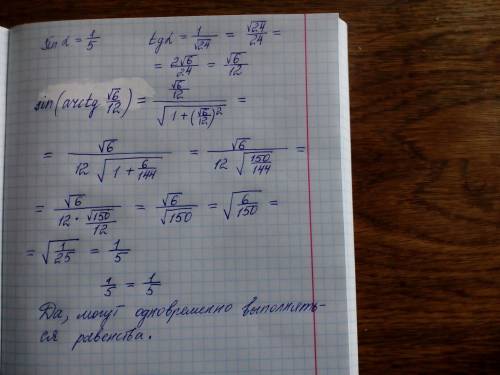 sin α = 1/5    tg α = 1/√24 = √24/24 =
= 2√6/24 = √6/12
sin(arctg √6/12) = (√6/12)/√(1+(√6/12)²) =
= √6/(12√(1+6/144)) = √6/(12√(150/144)) =
= √6/(12*√150/12) = √6/√150 = √(6/150) =
= √(1/25) = 1/5
1/5 = 1/5
Да, могут одновременно выполнять-
ся равенства.